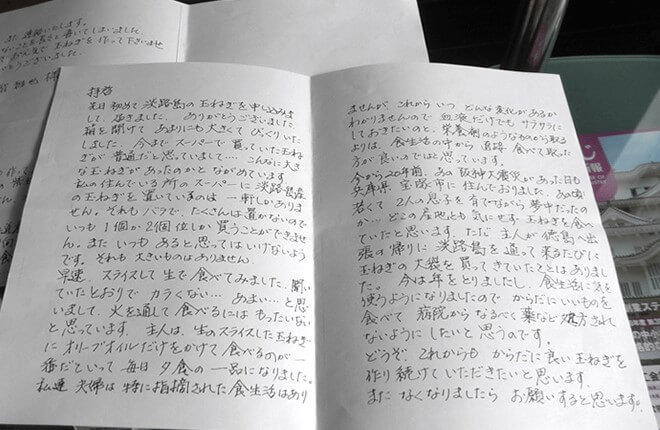 また 連絡いたします。
ないことを長々と書いてしまいました
で 玉ねぎを作って下さいませ
うございました。
様
拝啓
先日初めて淡路島の玉ねぎを申し込みま
して、届きました。ありがとうございました
箱を開けて あまりにも大きくて びっくりいた
しました。今までスーパーで買っていた玉ね
ぎが 普通だと思っていまして… こんなに大き
な玉ねぎがあったのかとながめています
私の住んでいる所のスーパーに淡路島産
の玉ねぎを置いているのは 一軒しかありま
せん。それも バラで、たくさんは置かないので
いつも 1個か2個位しか買うことができませ
ん。また いつも あると思ってはいけないよう
です。それも大きいものはありません。
早速、スライスして 生で食べてみました。聞い
ていたとおりで カラくない… あまい… と思
いまして、火を通して食べるには もったいない
と思っています。主人は、生のスライスした玉ねぎ
に オリーブオイルだけをかけて食べるのが一
番だといって 毎日 夕食の一品になりました。
私達 夫婦は 特に指摘された食生活はあり
ませんが、これから いつ どんな変化があるか
わかりませんので 血液だけでも サラサラに
しておきたいのと、栄養剤のようなものから取る
よりは、食生活の中から 直接 食べて取った
方が良いのではと思っています。
今から20年前、あの阪神大震災があった日も
兵庫県 宝塚市に 住んでおりました。あの頃
若くて 2人の息子を育てながら 夢中だったの
か… どこの産地とも 気にせず 玉ねぎを食べ
ていたと思います。ただ 主人が 徳島へ出
張の帰りに 淡路島を通って来るたびに
玉ねぎの大袋を買ってきていたことはありまし
た。今は年をとりましたし、食生活に気を
使うようになりましたので からだにいいものを
食べて 病院から なるべく薬など 処方され
ないように したいと思うのです。
どうぞ これからも からだに良い玉ねぎを
作り続けていただきたいと思います。
また なくなりましたら お願いすると思います。